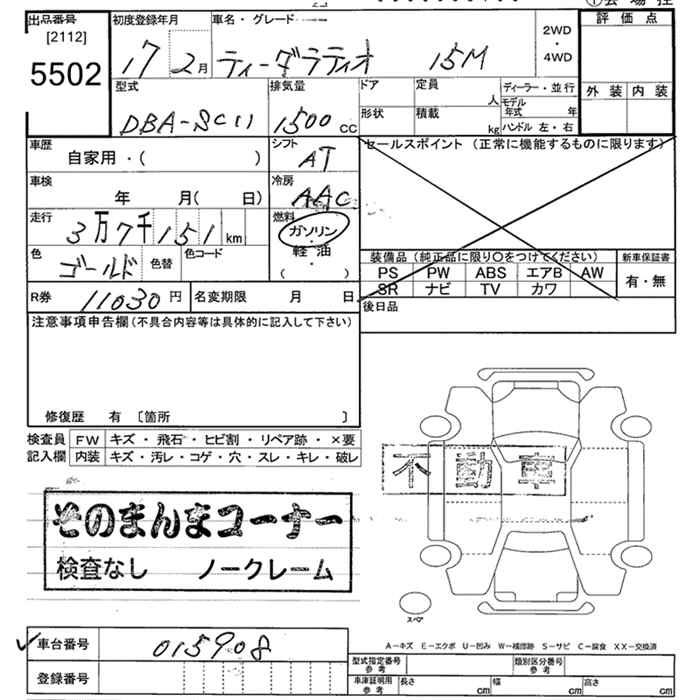 出品番号 初度登録年月 車名・グレード 評価点
[2112]
5502 17 2月 ティーダラティオ 15M 2WD・4WD
外装 内装
型式 排気量 ドア 定員 人 ディーラー・並行
DBA-SC11 1500 CC 形状 積載 kg モデル年式 年
ハンドル 左・右
車歴 自家用・( ) シフト AT セールスポイント(正常に機能するものに限ります)
車検 年 月( 日) 冷房 AAC
走行 3万7千151km 燃料 ガソリン・軽油・( )
色 ゴールド 色替 色コード
装備品(純正品に限り○をつけてください) 新車保証書
PS PW ABS エアB AW 有・無
SR ナビ TV カワ
R券 11030円 名変期限 月 日 後日品
注意事項申告欄(不具合内容等は具体的に記入して下さい)
修復歴 有 〔箇所 〕
検査員 FW キズ・飛石・ヒビ割・リペア跡・×要
記入欄 内装 キズ・汚レ・コゲ・穴・スレ・キレ・破レ
不動車
そのまんまコーナー
検査なし ノークレーム
スペア
✓車台番号 015908
登録番号
A−キズ E−エクボ U−凹み W−補修跡 S−サビ C−腐食 XX−交換済
型式指定番号 参考 類別区分番号 参考
車庫証明用 参考 長さ cm 幅 cm 高さ cm